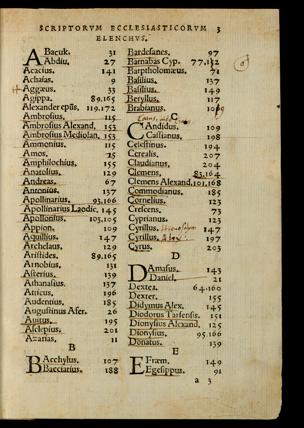 SCRIPTORVM ECCLESIASTICORVM 3
ELENCHVS.
ABacuk. 31
Abdiu. 27
Acacius. 141
Achaſas. 9
Aggæus. 33
Agippa. 89.165
Alexander epūs. 119.172
Ambroſius. 115
Ambroſius Alexand. 153
Ambroſius Mediolan. 153
Ammonius. 115
Amos. 25
Amphilochius. 155
Anatolius. 129
Andreas. 67
Antonius. 137
Apollinarius. 93.166
Apollinarius Laodic. 145
Apollonius. 103.105
Appion. 109
Aquillius. 147
Archelaus. 129
Ariſtides. 89.165
Arnobius. 131
Aſterius. 139
Athanaſius. 137
Atticus. 196
Audentius. 185
Auguſtinus Afer. 26
Auitus. 195
Aſclepius. 201
Azarias. 11
B
BAcchylus. 107
Bacciarius. 188
Bardeſanes. 97
Barnabas Cyp. 77,132
Barptholomæus. 71
Baſilius. 137
Baſilius. 149
Beryllus. 117
Brabianus. 109
C
CAndidus. 109
Caſsianus. 198
Celeſtinus. 194
Cerealis. 207
Claudianus. 204
Clemens. 83.164
Clemens Alexand. 101,168
Commodianus. 185
Cornelius. 123
Creſcens. 73
Cyprianus. 123
Cyrillus. 147
Cyrillus. 197
Cyrus. 203
D
DAmaſus. 143
Daniel. 21
Dextea. 64.160
Dexter. 155
Didymus Alex. 145
Diodorus Tarſenſis. 151
Dionyſius Alexand. 125
Dionyſius. 95.166
Donatus. 139
E
EFræm. 149
Egeſippus. 91
a 3